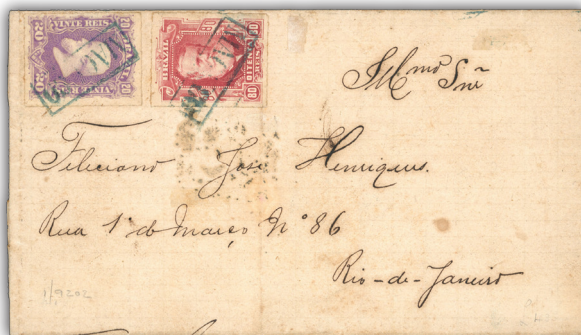 20 VINTE REIS 20
BRAZIL
VINTE REIS
BRAZIL
80 OITENTA REIS 80
Illmo Snr
Feliciano José Henriques.
Rua 1º de Março Nº 86
Rio-de-Janeiro
1/9202